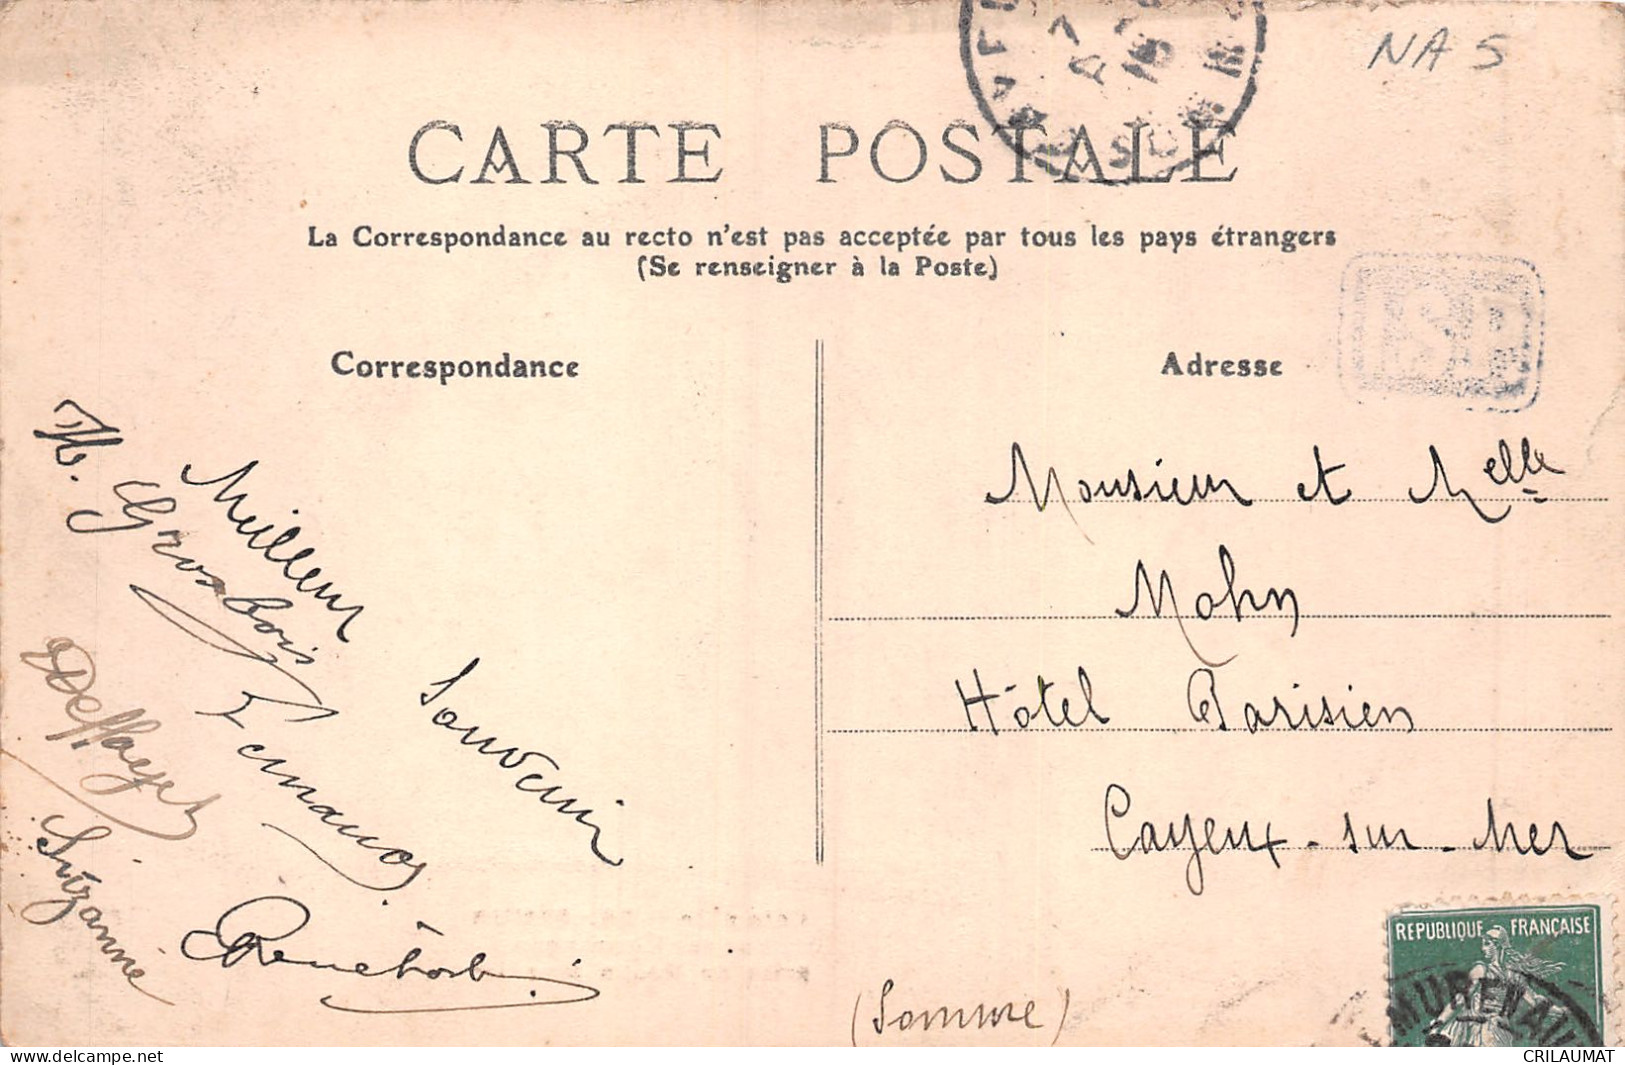 NA 5
CARTE POSTALE
La Correspondance au recto n'est pas acceptée par tous les pays étrangers
(Se renseigner à la Poste)
Correspondance
Meilleur
Souvenir
H. Grosbois
Deffayet
Suzanne
Adresse
Monsieur et Melle
Mohn
Hôtel Parisien
Cayeux-sur-Mer
(Somme)
REPUBLIQUE FRANÇAISE
CRILAUMAT